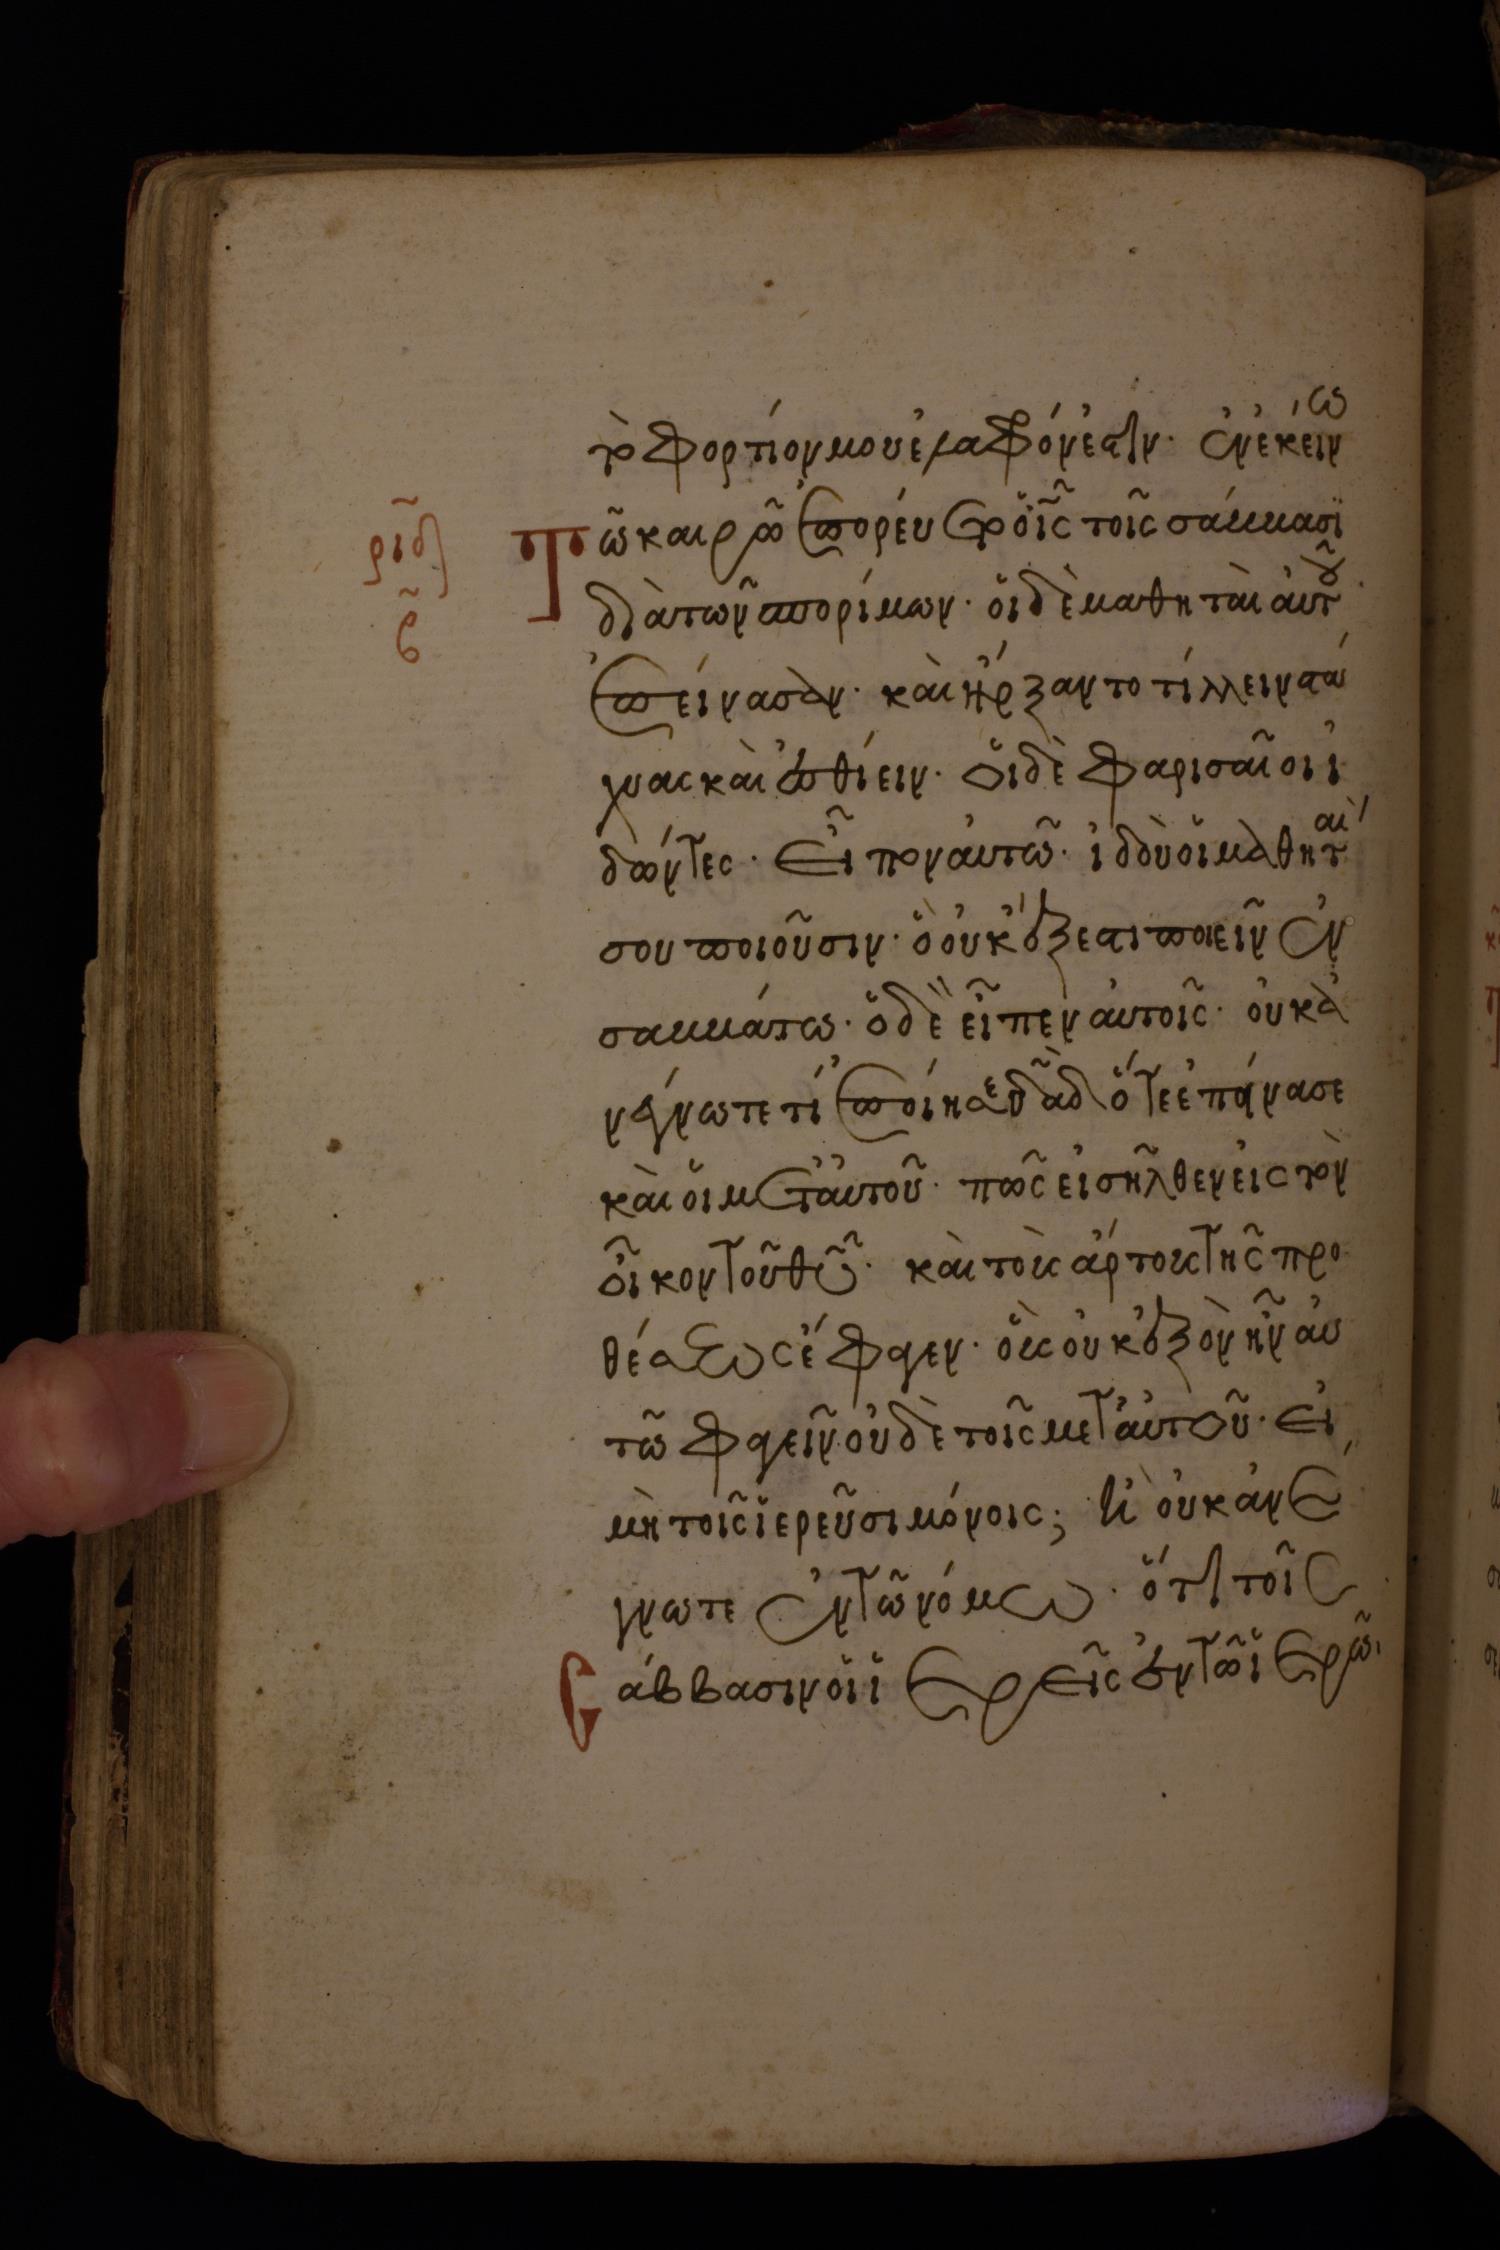 τὸ φορτίον μου ἐλαφρόν ἐστιν· ἐν ἐκείνω
Τῶ καιρῶ ἐπορεύθη ὁ ἰ̅ς̅ τοῖς σάββασϊ
διὰ τῶν σπορίμων· ὅι δὲ μαθηταὶ ἀυτοῦ
ἐπείνασὰν· καὶ ἤρξαντο τίλλειν στά
χυας καὶ ἐσθίειν· ὅι δὲ φαρισαῖοι ἰ
δόντες· εἶπον ἀυτῶ· ἰδοὺ ὅι μαθηταί
σου ποιοῦσιν· ὃ οὐκ ἔξεστι ποιεῖν ἐν
σαββάτω· ὁ δὲ εἶπεν ἀυτοῖς· οὐκ ἀ
νέγνωτε τί ἐποίησεν δ̅α̅δ̅ ὅτε ἐπείνασε
καὶ ὅι μετ' ἀυτοῦ· πῶς εἰσῆλθεν εἰς τὸν
οἶκον τοῦ θ̅υ̅· καὶ τοὺς ἄρτους τῆς προ
θέσεως ἔφαγεν· οὓς οὐκ ἐξὸν ἦν ἀυ
τῶ φαγεῖν οὐδὲ τοῖς μετ' ἀυτοῦ· εἰ
μὴ τοῖς ἱερεῦσι μόνοις; ἢ οὐκ ἀνέ
γνωτε ἐν τῶ νόμω· ὅτι τοῖς
Σάββασιν ὅι ἱερεῖς ἐν τῶ ἱερῶ